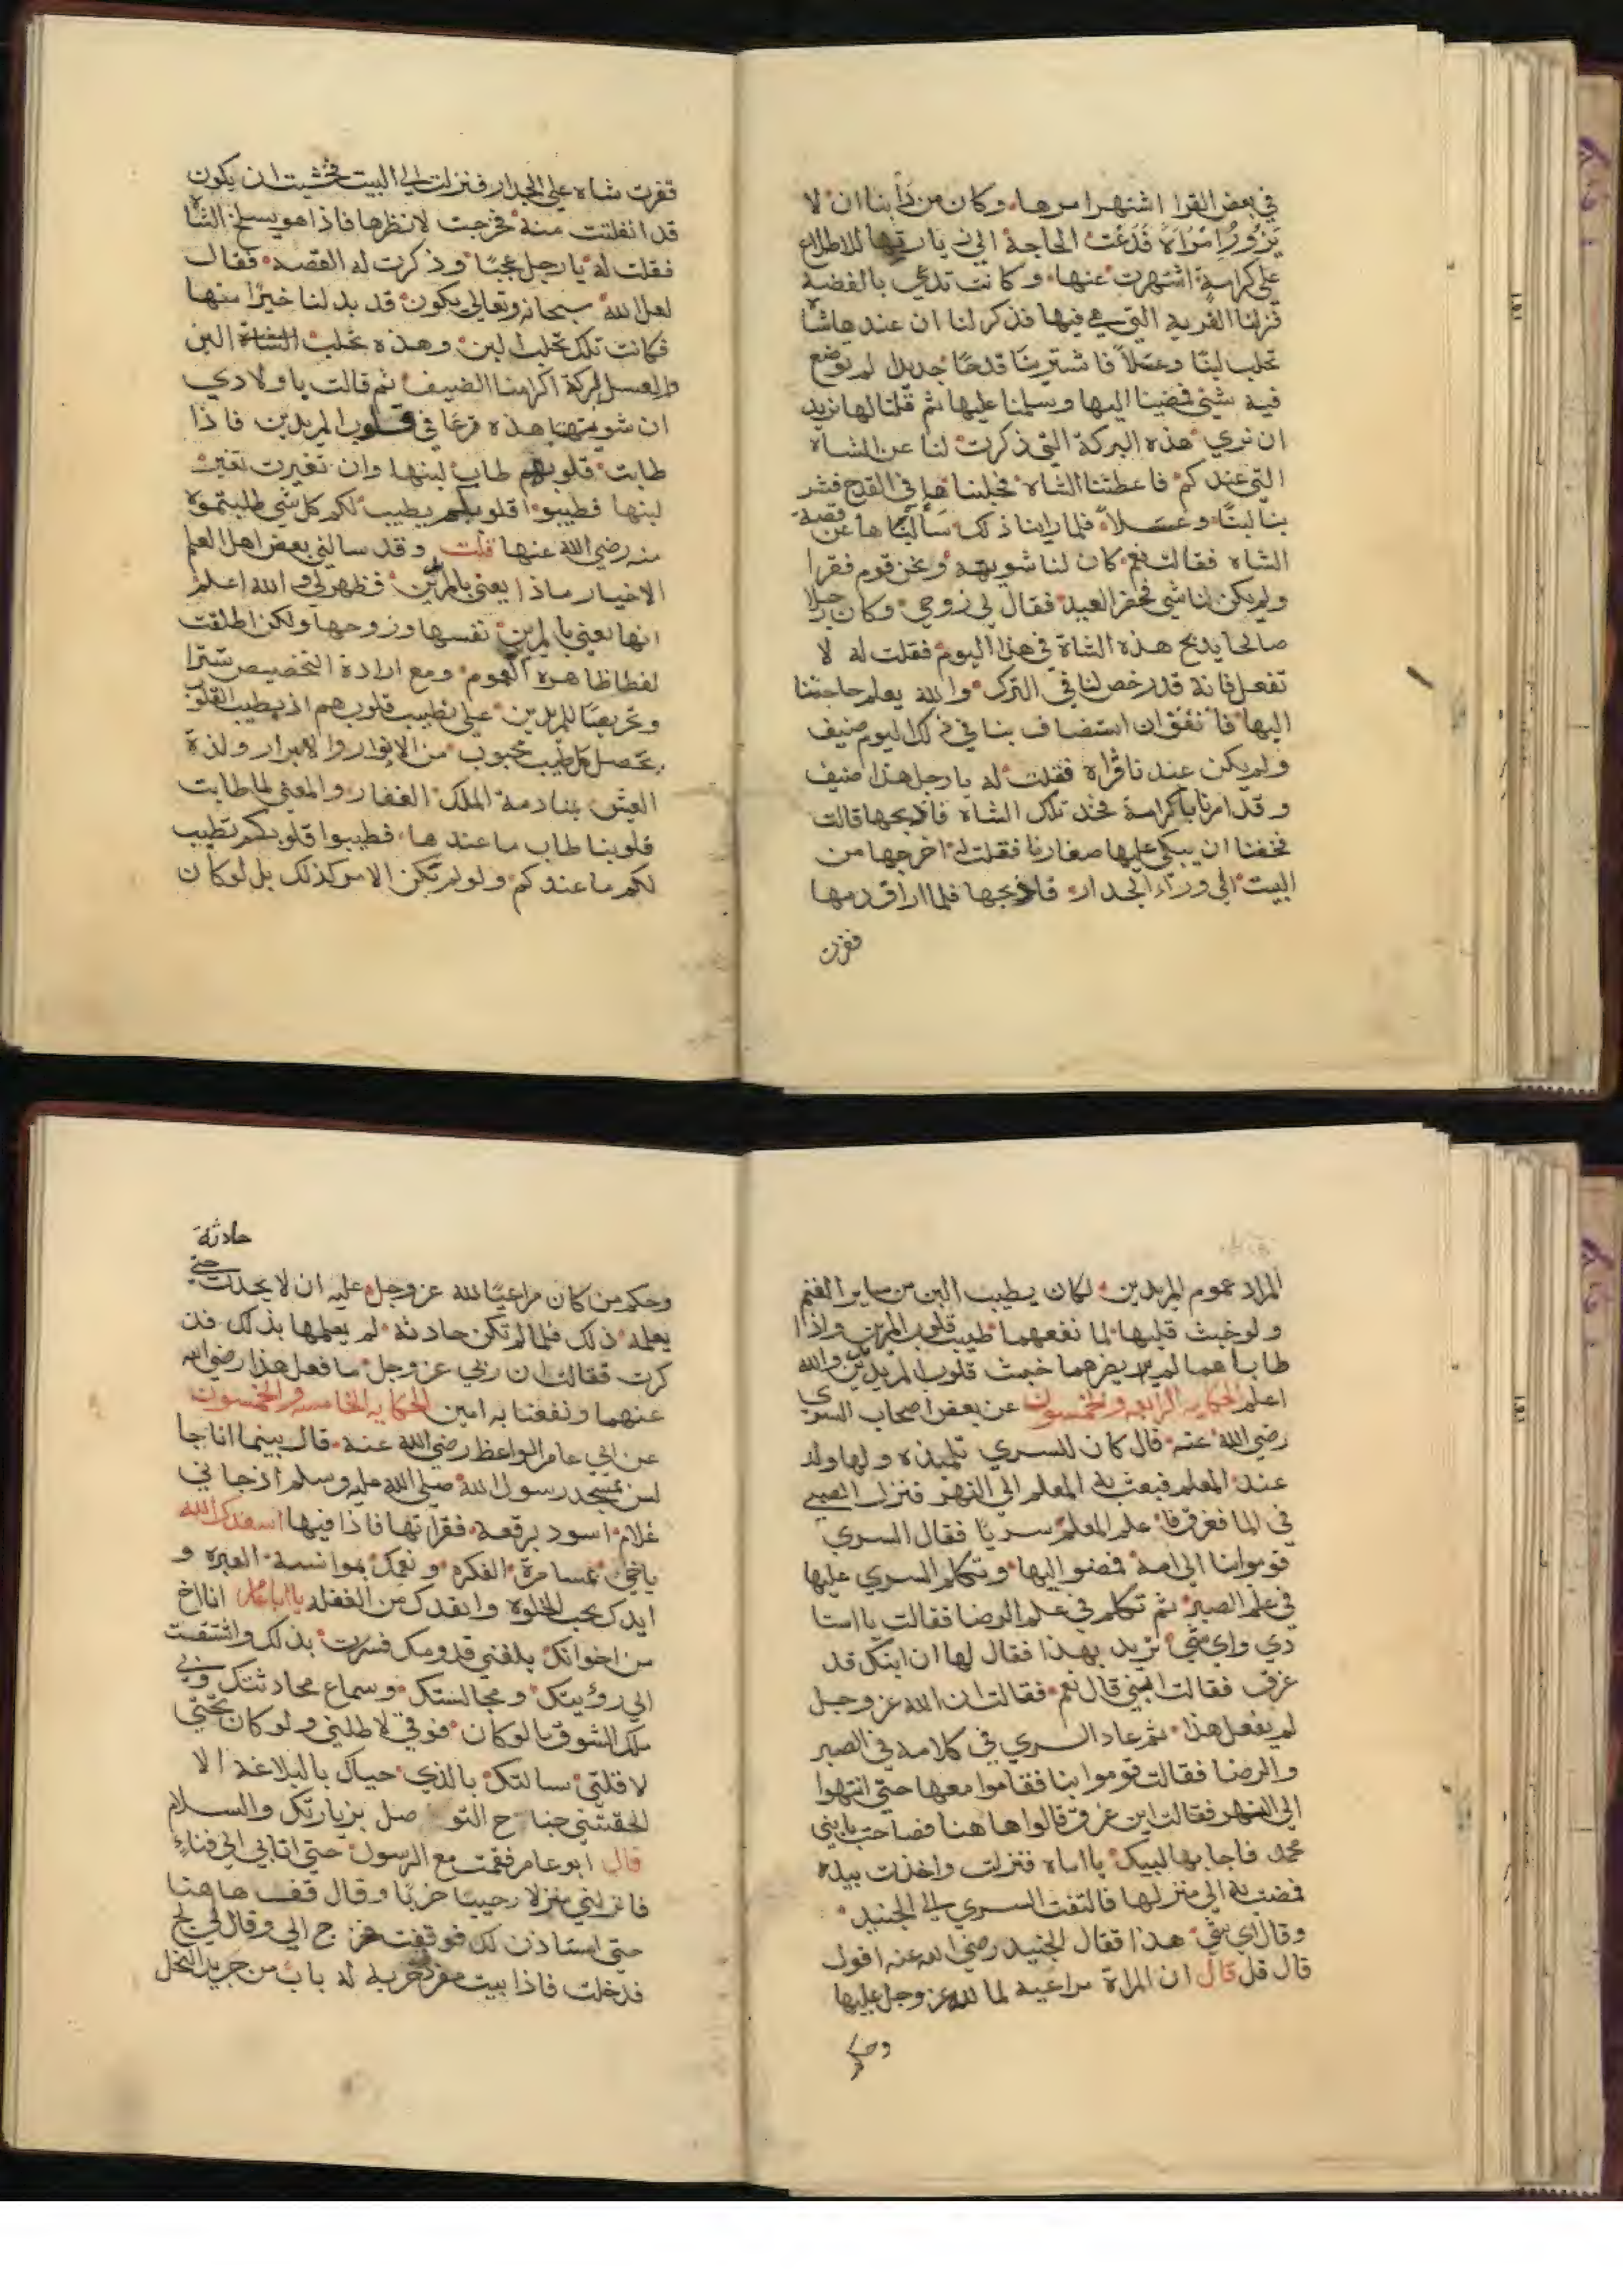 في بعض القرا اشتهر امرها وكان من دأبنا ان لا
يزورُ امْرَاةً فدعت الحاجة الي زيارتها للاطلاع
علي كرامة اشتهرت عنها وكانت تدعي بالفضة
فزلنا القرية التي هي فيها فذكر لنا ان عندها شاة
تحلب لبنًا وعسلاً فاشترينا قدحًا جديدا لم يوضع
فيه شئ فمضينا اليها وسلمنا عليها ثم قلنا لها نريد
ان نري هذه البركة التي ذكرت لنا عن الشاه
التي عندكم فاعطتنا الشاه فحلبناها في القدح فشر
بنا لبنًا وعسلاً فلما راينا ذلك سألناها عن قصة
الشاه فقالت نعم كان لنا شويهة ونحن قوم فقرا
ولم يكن لنا شي فحضر العيد فقال لي زوجي وكان رجلا
صالحا يذبح هذه الشاة في هذا اليوم فقلت له لا
تفعل فانه قد رخص لنا في الترك والله يعلم حاجتنا
اليها فاتفق ان استضاف بنا في ذلك اليوم ضيف
ولم يكن عندنا قراه فقلت له يا رجل هذا ضيف
وقد امرنا باكرامه فخذ تلك الشاه فاذبحها قالت
فخفنا ان يبكي عليها صغارنا فقلت له اخرجها من
البيت الي وراء الجدار فاذبحها فلما اراق دمها
قفزت
قفزت شاه علي الجدار فنزلت الي البيت فخشيت ان يكون
قد انفلتت منه فخرجت لانظرها فاذا هو يسلخ الشاه
فقلت له يا رجل عجبًا وذكرت له القصه فقال
لعل الله سبحانه وتعالي يكون قد بدلنا خيرًا منها
فكانت تلك تحلب لبن وهذه تحلب الشاة البن
والعسل ببركة اكرامنا الضيف ثم قالت يا ولادي
ان شويهتنا هذه ترعا في قلوب المريدين فاذا
طابت قلوبهم طاب لبنها وان تغيرت تغير
لبنها فطيبوا قلوبكم يطيب لكم كل شي طلبتموه
منه رضي الله عنها قلت وقد سالني بعض اهل العلم
الاخيار ماذا يعني بالمريدين فظهر لي والله اعلم
انها تعني بالمريدين نفسها وزوجها ولكن اطلقت
لفظا ظاهره العموم ومع ارادة التخصيص سترا
وتحريضًا للمريدين علي تطييب قلوبهم اذ بطيب القلوب
يحصل كل طيب محبوب من الانوار والاسرار ولذة
العيش بمنادمة الملك الغفار والمعني لما طابت
قلوبنا طاب ما عندها فطيبوا قلوبكم تطيب
لكم ما عندكم ولو لم تكن الامر كذلك بل لو كان
المراد عموم المريدين لكان يطيب البن من ساير الغنم
ولو خبث قلبها لما نفعهما طيب قلوب المريدين واذا
طابا هما لم يضرهما خبث قلوب المريدين والله
اعلم الحكايه الرابعه والخمسون عن بعض اصحاب السري
رضي الله عنه قال كان للسري تلميذه ولها ولد
عند المعلم فبعث به المعلم الي النهر فنزل الصبي
في الما فغرق فاعلم المعلم سريًا فقال السري
قوموا بنا الي امه فمضوا اليها وتكلم السري عليها
في علم الصبر ثم تكلم في علم الرضا فقالت يا استا
دي واي شي تريد بهذا فقال لها ان ابنك قد
غرق فقالت ابني قال نعم فقالت ان الله عز وجل
لم يفعل هذا ثم عاد السري في كلامه في الصبر
والرضا فقالت قوموا بنا فقاموا معها حتي انتهوا
الي النهر فقالت اين غرق قالوا هاهنا فصاحت يا بني
محمد فاجابها لبيك يا اماه فنزلت واخذت بيده
فمضت به الي منزلها فالتفت السري الي الجنيد
وقال اي شي هذا فقال الجنيد رضي الله عنه اقول
قال قل قال ان المراة مراعية لما لله عز وجل عليها
وحكم
حادثة
وحكم من كان مراعيًا لله عز وجل عليه ان لا يحدث حتي
يعلمه ذلك فلما لم تكن حادثة لم يعلمها بذلك فان
كرت فقالت ان ربي عز وجل ما فعل هذا رضي الله
عنهما ونفعنا به امين الحكايه الخامسه والخمسون
عن ابي عامر الواعظ رضي الله عنه قال بينما انا جا
لس بمسجد رسول الله صلي الله عليه وسلم اذ جاني
غلام اسود برقعة فقراتها فاذا فيها اسعدك الله
ياخي بمسامرة الفكره ونعمك بموانسة العبره و
ايدك بحب الخلوه وانقدك من الغفله يا اباعامر انا اخ
من اخوانك بلغني قدومك فسررت بذلك واشتقت
الي رؤيتك ومجالستك وسماع محادثتك وبي
من الشوق ما لو كان فوقي لاظلني ولو كان تحتي
لاقلني سالتك بالذي حباك بالبلاغه الا
الحقتني جناح التو صل بزيارتك والسلام
قال ابو عامر فقمت مع الرسول حتي اتابي الي فناءٍ
فانزلني منزلا رحيبًا خربًا وقال قف هاهنا
حتي استاذن لك فوقفت فخرج الي وقال لي لج
فدخلت فاذا بيت مفرد خربة له باب من جريد النخل